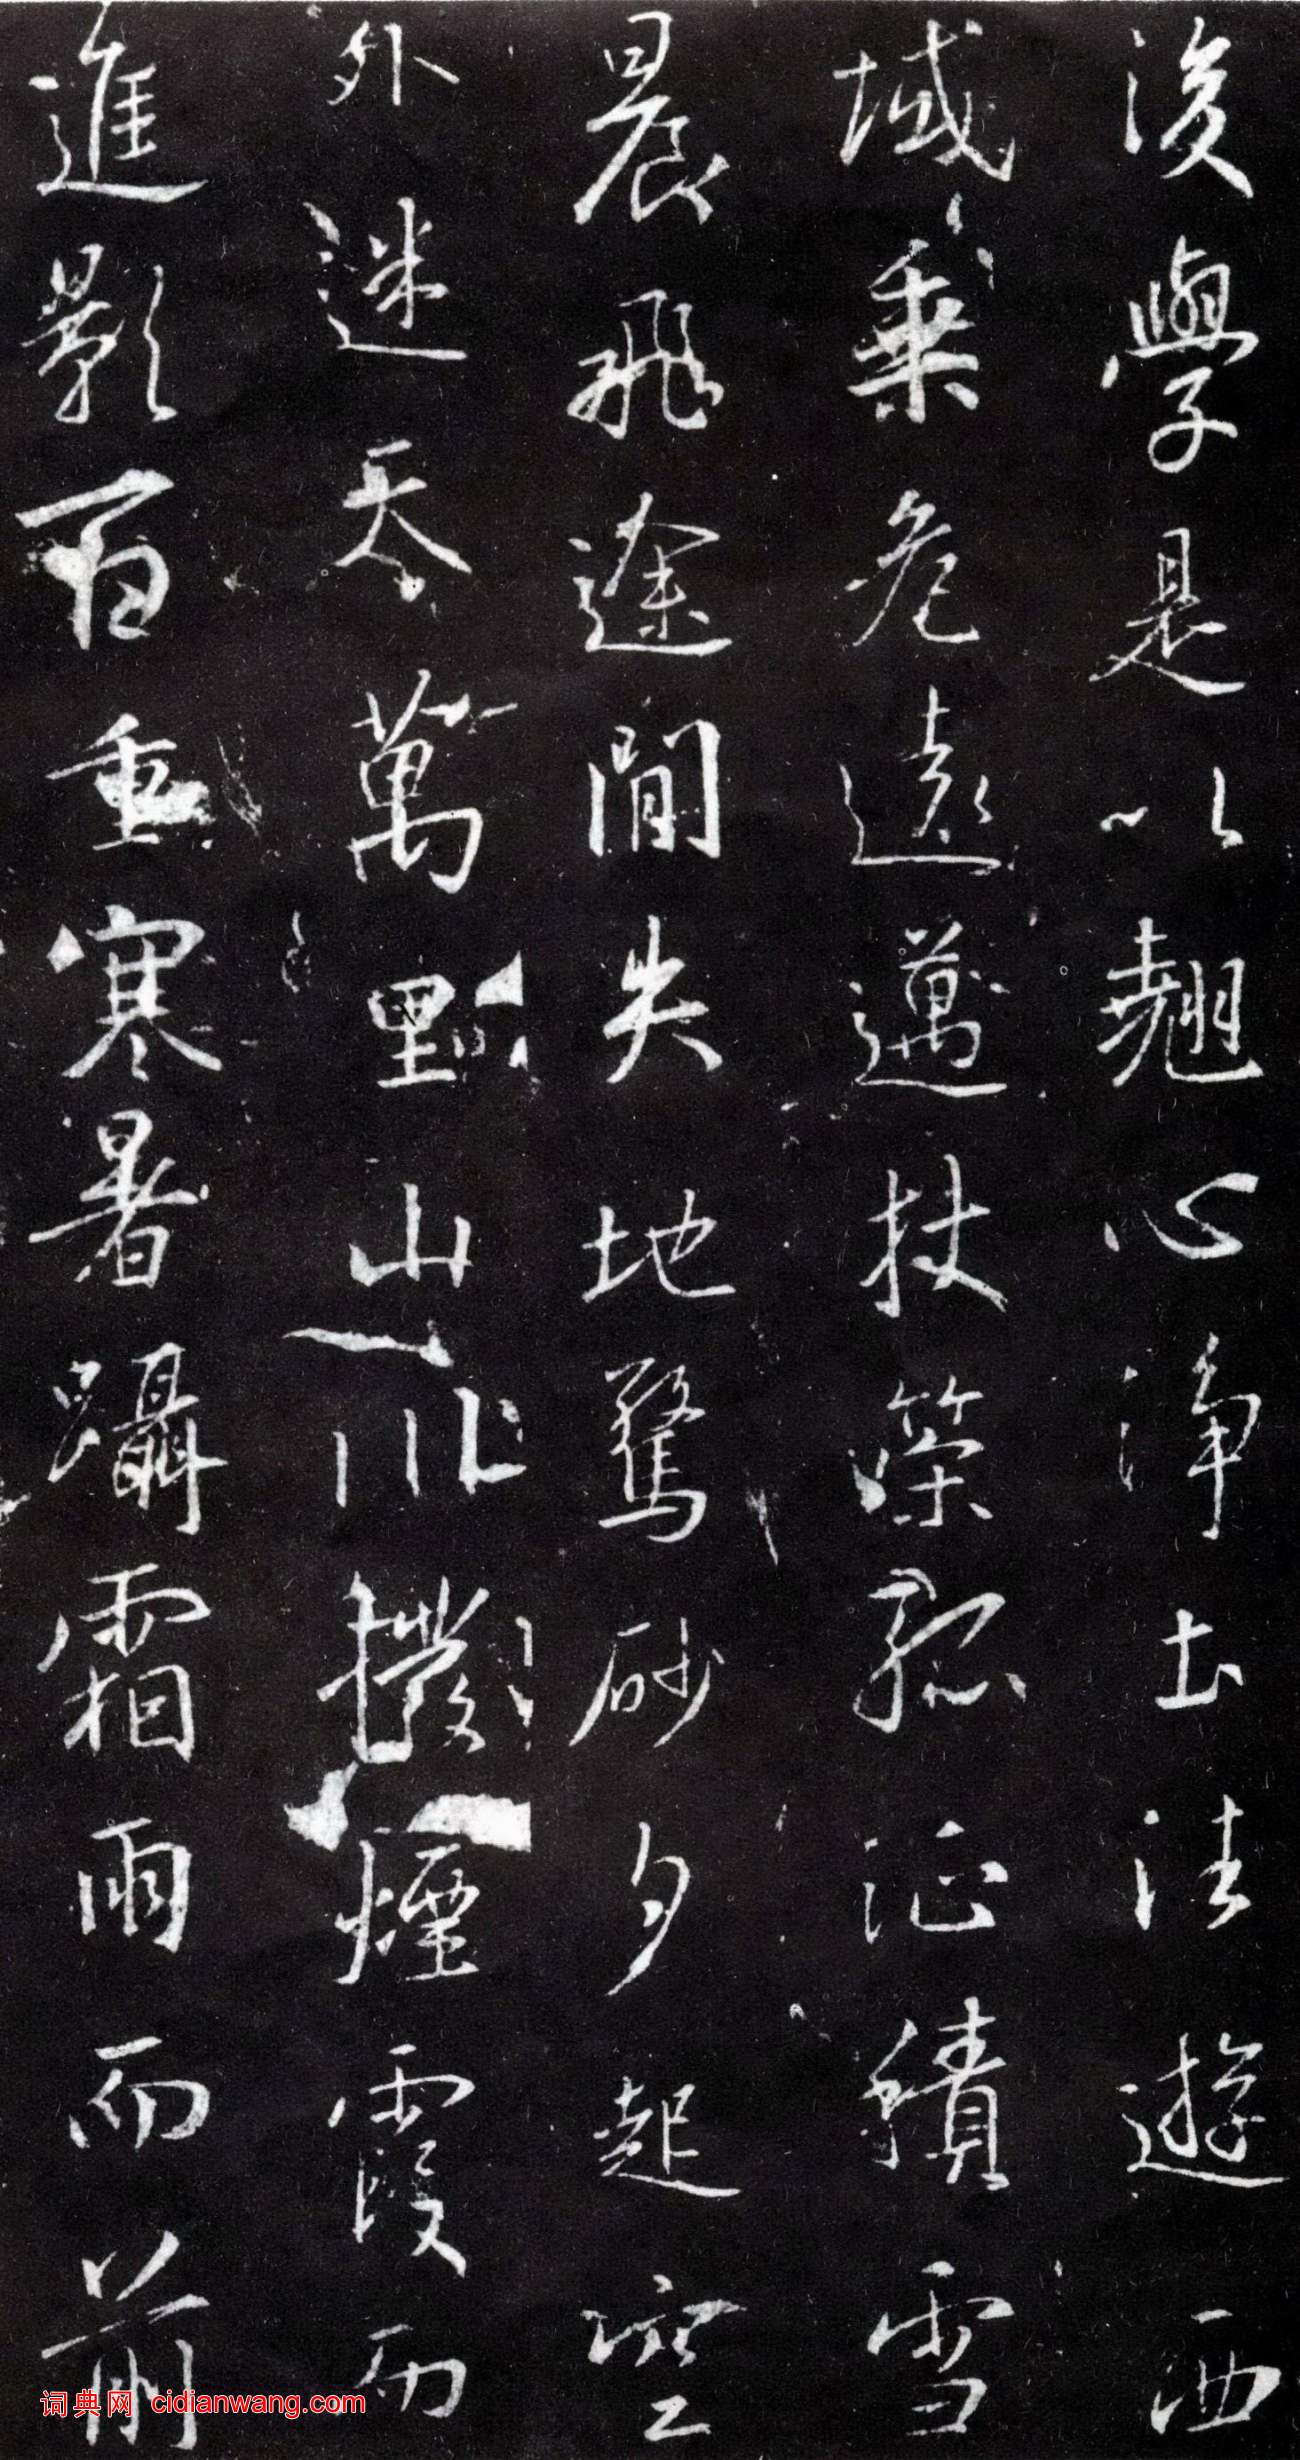 後學是以翹心淨土法遊西
域乘危遠邁杖策孤征積雪
晨飛途間失地驚砂夕起空
外迷天萬里山川撥煙霞而
進影百重寒暑躡霜雨而前
词典网 cidianwang.com